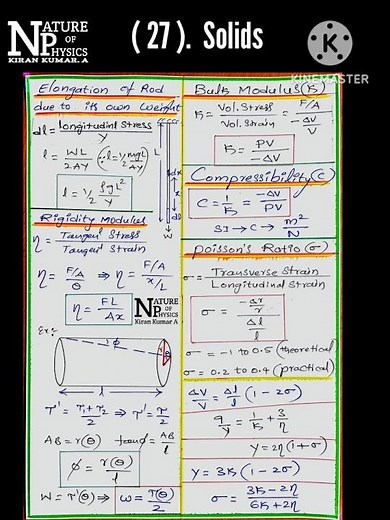 NATURE
OF
PHYSICS
KIRAN KUMAR. A
(27). Solids
K
KINEMASTER
Elongation of Rod
due to its own Weight
dl = Longitudinl Stress / Y
l = WL / 2AY (∵ l = 1/2 mgL / AY)
l = 1/2 ρgL² / Y
L
dx
x
dl
W
Rigidity Modulus
η = Tangenl Stress / Tangenl Strain
η = F/A / θ ⇒ η = F/A / x/L
η = FL / Ax
NATURE
OF
PHYSICS
Kiran Kumar A
Ex:-
ϕ
θ
l
τ' = τ₁+τ₂ / 2 ⇒ τ' = τ / 2
AB = r(θ) tanϕ = AB / l
ϕ = r(θ) / l
W = τ'(θ) ⇒ W = τ(θ) / 2
Bulk Modulus (K)
K = Vol. Stress / Vol. Strain = F/A / -ΔV/V
K = PV / -ΔV
Compressibility (C)
C = 1/K = -ΔV / PV
SI → C → m² / N
Poisson's Ratio (σ)
σ = Transverse Strain / Longitudinal Strain
σ = -Δr/r / Δl/l
σ = -1 to 0.5 (theoretical)
σ = 0.2 to 0.4 (practical)
ΔV/V = Δl/l (1 - 2σ)
9/Y = 1/K + 3/η
Y = 2η(1+σ)
Y = 3K(1-2σ)
σ = 3K-2η / 6K+2η